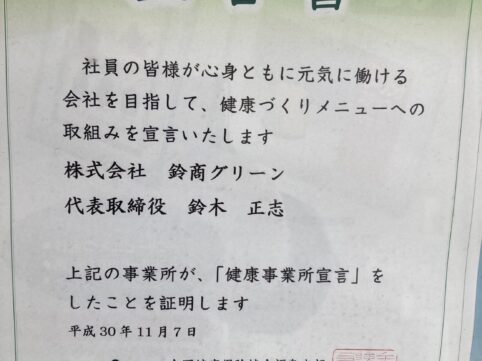 社員の皆様が心身ともに元気に働ける
会社を目指して、健康づくりメニューへの
取組みを宣言いたします
株式会社　鈴商グリーン
代表取締役　鈴木　正志
上記の事業所が、「健康事業所宣言」を
したことを証明します
平成30年11月7日